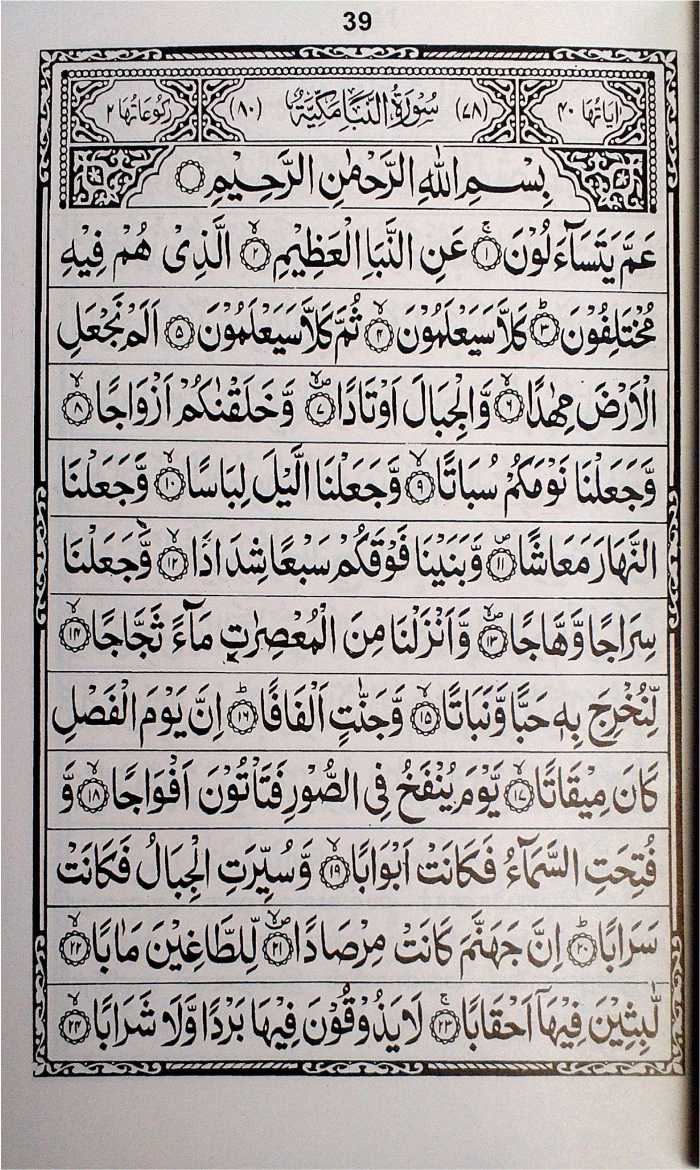 39
اٰيَاتُهَا ٤٠ (٧٨) سُوْرَةُ النَّبَاِ مَكِّيَّةٌ (٨٠) رُكُوْعَاتُهَا ٢
بِسْمِ اللّٰهِ الرَّحْمٰنِ الرَّحِيْمِ
عَمَّ يَتَسَآءَلُوْنَ ۚ‏﴿١﴾ عَنِ النَّبَاِ الْعَظِيْمِ ۙ‏﴿٢﴾ الَّذِىْ هُمْ فِيْهِ
مُخْتَلِفُوْنَ ؕ‏﴿٣﴾ كَلَّا سَيَعْلَمُوْنَ ۙ‏﴿٤﴾ ثُمَّ كَلَّا سَيَعْلَمُوْنَ ‏﴿٥﴾ اَلَمْ نَجْعَلِ
الْاَرْضَ مِهٰدًا ۙ‏﴿٦﴾ وَّالْجِبَالَ اَوْتَادًا ۙ‏﴿٧﴾ وَّخَلَقْنٰكُمْ اَزْوَاجًا ۙ‏﴿٨﴾
وَّجَعَلْنَا نَوْمَكُمْ سُبَاتًا ۙ‏﴿٩﴾ وَّجَعَلْنَا الَّيْلَ لِبَاسًا ۙ‏﴿١٠﴾ وَّجَعَلْنَا
النَّهَارَ مَعَاشًا ‏﴿١١﴾ وَّبَنَيْنَا فَوْقَكُمْ سَبْعًا شِدَادًا ۙ‏﴿١٢﴾ وَّجَعَلْنَا
سِرَاجًا وَّهَّاجًا ‏﴿١٣﴾ وَّاَنْزَلْنَا مِنَ الْمُعْصِرٰتِ مَآءً ثَجَّاجًا ۙ‏﴿١٤﴾
لِّنُخْرِجَ بِهٖ حَبًّا وَّنَبَاتًا ۙ‏﴿١٥﴾ وَّجَنّٰتٍ اَلْفَافًا ؕ‏﴿١٦﴾ اِنَّ يَوْمَ الْفَصْلِ
كَانَ مِيْقَاتًا ۙ‏﴿١٧﴾ يَّوْمَ يُنْفَخُ فِى الصُّوْرِ فَتَاْتُوْنَ اَفْوَاجًا ۙ‏﴿١٨﴾ وَّ
فُتِحَتِ السَّمَآءُ فَكَانَتْ اَبْوَابًا ۙ‏﴿١٩﴾ وَّسُيِّرَتِ الْجِبَالُ فَكَانَتْ
سَرَابًا ؕ‏﴿٢٠﴾ اِنَّ جَهَنَّمَ كَانَتْ مِرْصَادًا ۙ‏﴿٢١﴾ لِّلطَّاغِيْنَ مَاٰبًا ۙ‏﴿٢٢﴾
لّٰبِثِيْنَ فِيْهَآ اَحْقَابًا ۚ‏﴿٢٣﴾ لَا يَذُوْقُوْنَ فِيْهَا بَرْدًا وَّلَا شَرَابًا ۙ‏﴿٢٤﴾